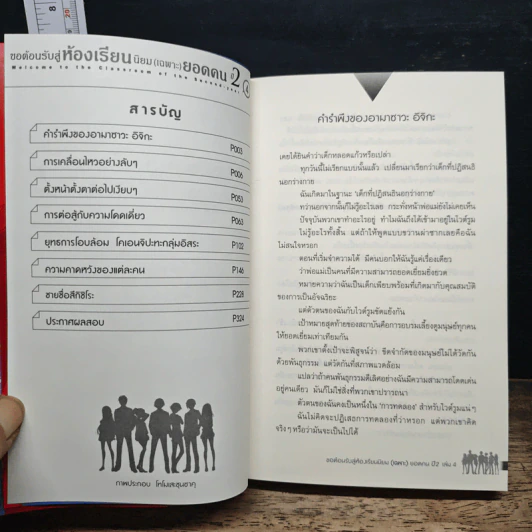 ขอต้อนรับสู่ห้องเรียนนิยม(เฉพาะ)ยอดคน ปี2
Welcome to the Classroom of the Second-year
4
สารบัญ
คำรำพึงของอามาซาวะ อิจิกะ P003
การเคลื่อนไหวอย่างลับๆ P006
ตั้งหน้าตั้งตาต่อไปเงียบๆ P053
การต่อสู้กับความโดดเดี่ยว P063
ยุทธการโอบล้อม โคเอนจิปะทะกลุ่มอิสระ P102
ความคาดหวังของแต่ละคน P146
ชายชื่อสึกิชิโระ P228
ประกาศผลสอบ P324
ภาพประกอบ โทโมเสะชุนซาคุ
คำรำพึงของอามาซาวะ อิจิกะ
เคยได้ยินคำว่าเด็กหลอดแก้วหรือเปล่า
ทุกวันนี้ไม่เรียกแบบนั้นแล้ว เปลี่ยนมาเรียกว่าเด็กที่ปฏิสนธิ
นอกร่างกาย
ฉันเกิดมาในฐานะ 'เด็กที่ปฏิสนธินอกร่างกาย'
ทว่านอกจากนั้นก็ไม่รู้อะไรเลย กระทั่งหน้าพ่อแม่ยังไม่เคยเห็น
ปัจจุบันพวกเขาทำอะไรอยู่ ทำไมฉันถึงได้เข้ามาอยู่ในไวต์รูม
ไม่รู้อะไรทั้งสิ้น แต่ถ้าให้พูดแบบขวานผ่าซากเลยคือฉัน
ไม่สนใจหรอก
ตอนที่เริ่มจำความได้ มีคนบอกให้ฉันรู้แค่เรื่องเดียว
ว่าพ่อแม่เป็นคนที่มีความสามารถยอดเยี่ยมยิ่งยวด
หมายความว่าฉันเป็นเด็กเพียบพร้อมที่เกิดมากับคุณสมบัติ
ของการเป็นอัจฉริยะ
แต่ตัวตนของฉันกับไวต์รูมขัดแย้งกัน
เป้าหมายสุดท้ายของสถาบันคือการอบรมเลี้ยงดูมนุษย์ทุกคน
ให้ยอดเยี่ยมเท่าเทียมกัน
พวกเขาตั้งเป้าจะพิสูจน์ว่า ขีดจำกัดของมนุษย์ไม่ได้วัดกัน
ด้วยพันธุกรรม แต่วัดกันที่สภาพแวดล้อม
แปลว่าถ้าคนพันธุกรรมดีเลิศอย่างฉันมีความสามารถโดดเด่น
อยู่คนเดียว มันก็ไม่ใช่สิ่งที่พวกเขาปรารถนา
ตัวตนของฉันคงเป็นหนึ่งใน 'การทดลอง' สำหรับไวต์รูมแน่ๆ
ฉันไม่คิดจะปฏิเสธการทดลองที่ว่าหรอก แต่พวกเขาคิด
จริงๆ หรือว่ามันจะเป็นไปได้
ขอต้อนรับสู่ห้องเรียนนิยม (เฉพาะ) ยอดคน ปี2 เล่ม 4